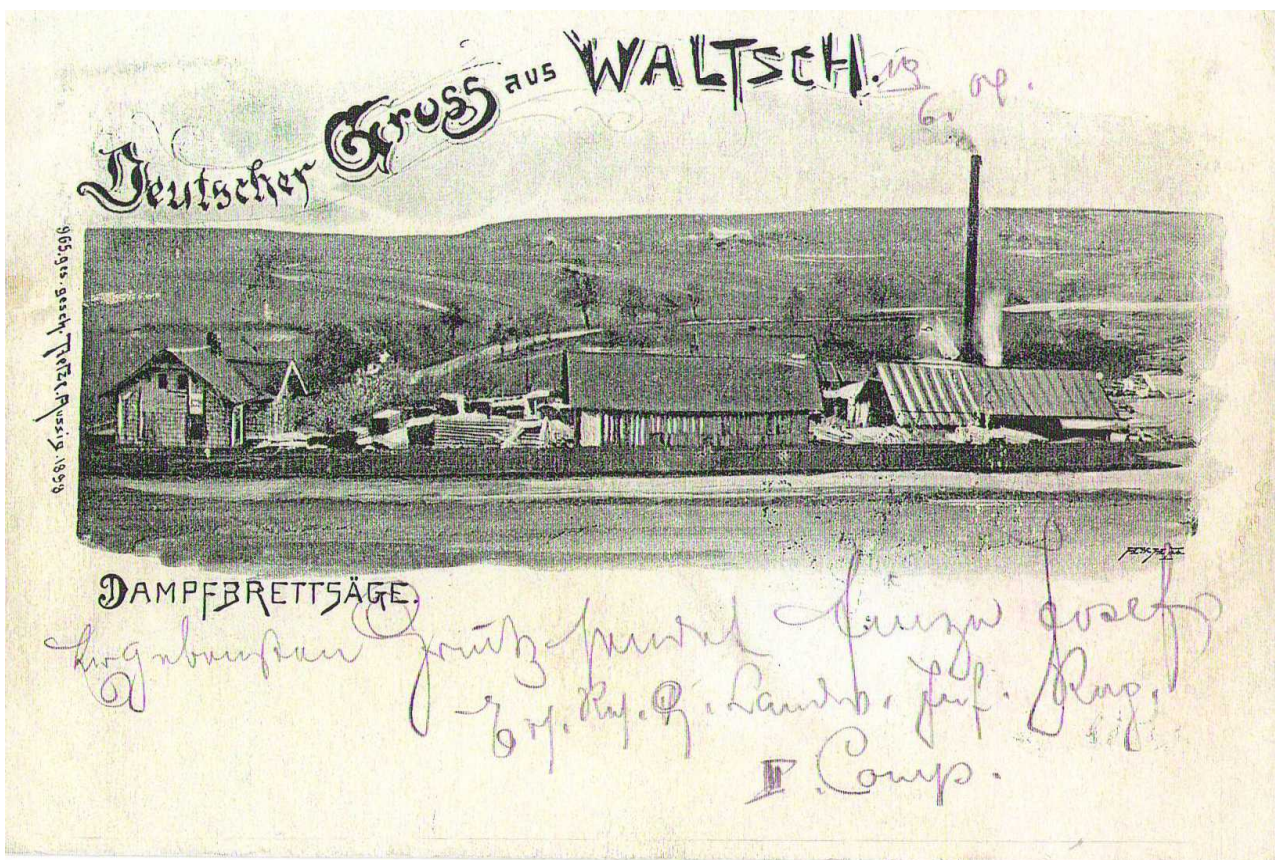 Deutscher Gruss aus WALTSCH.
6. 04.
965. ges. gesch. Tietze, Aussig. 1898
DAMPFBRETTSÄGE.
Ergebensten Gruß sendet Josef
Ers. Res. Landw. Inf. Reg.
II. Comp.